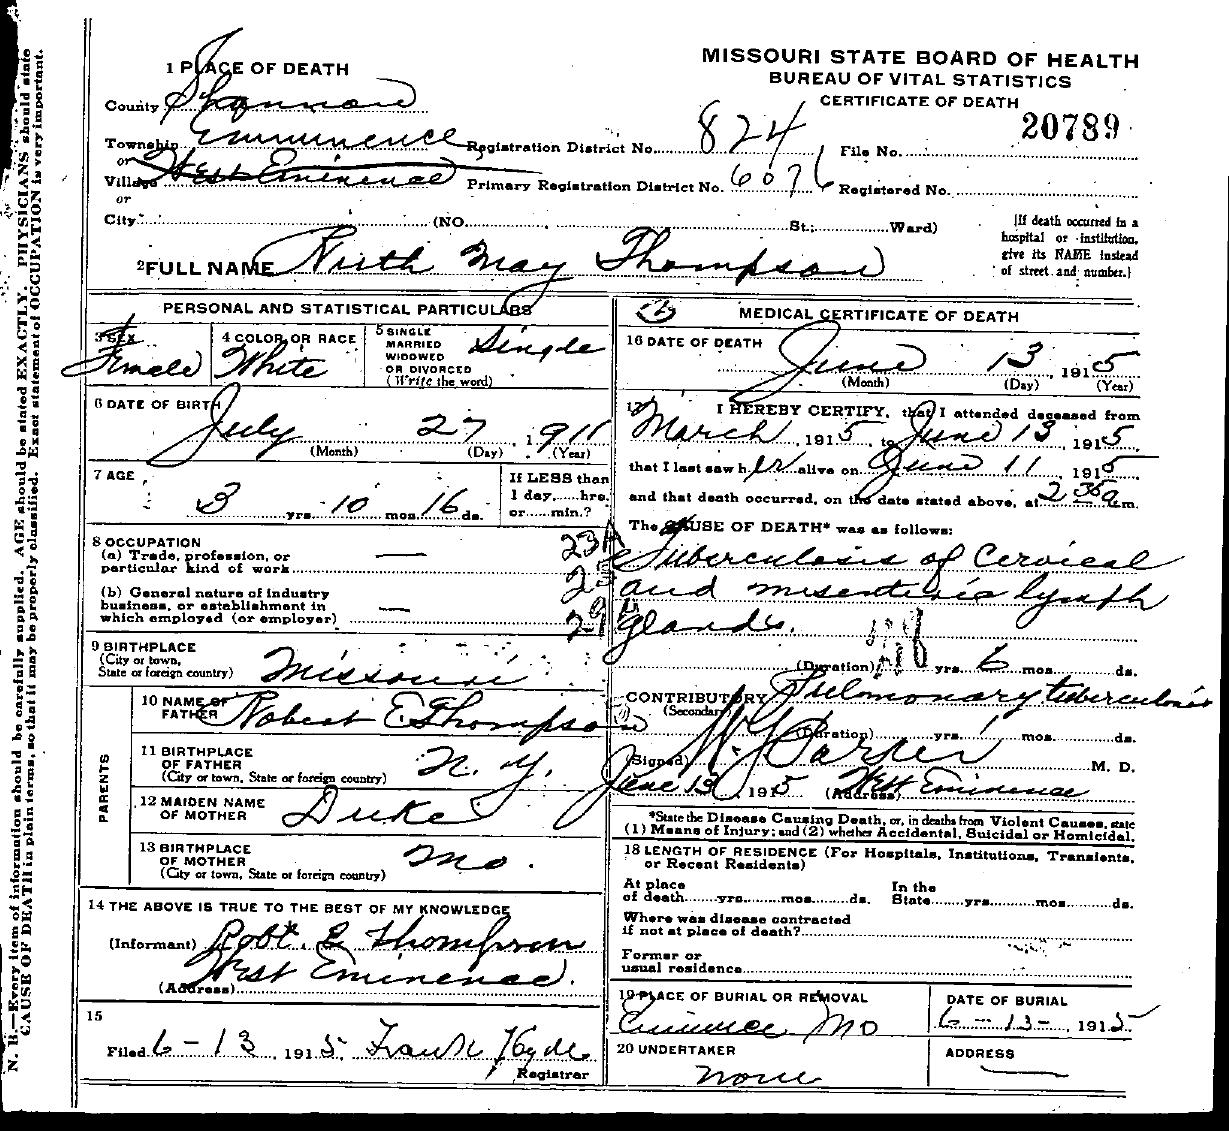 MISSOURI STATE BOARD OF HEALTH
BUREAU OF VITAL STATISTICS
CERTIFICATE OF DEATH
20789
1 PLACE OF DEATH
County Shannon
Township Eminence Registration District No. 824 File No.
or
Village West Eminence Primary Registration District No. 6076 Registered No.
or
City (NO. St.; Ward)
[If death occurred in a
hospital or institution,
give its NAME instead
of street and number.]
2 FULL NAME Ruth May Thompson
PERSONAL AND STATISTICAL PARTICULARS
3 SEX
Female
4 COLOR OR RACE
White
5 SINGLE
MARRIED
WIDOWED
OR DIVORCED
(Write the word)
Single
6 DATE OF BIRTH
July 27, 1911
(Month) (Day) (Year)
7 AGE
3 yrs. 10 mos. 16 ds.
If LESS than
1 day,.....hrs.
or.....min.?
8 OCCUPATION
(a) Trade, profession, or
particular kind of work —
(b) General nature of industry
business, or establishment in
which employed (or employer) —
23A
25
29
9 BIRTHPLACE
(City or town,
State or foreign country) Missouri
PARENTS
10 NAME OF
FATHER Robert E Thompson
11 BIRTHPLACE
OF FATHER
(City or town, State or foreign country) N. Y.
12 MAIDEN NAME
OF MOTHER Duke
13 BIRTHPLACE
OF MOTHER
(City or town, State or foreign country) Mo.
14 THE ABOVE IS TRUE TO THE BEST OF MY KNOWLEDGE
(Informant) Robt. E Thompson
West Eminence.
(Address)
15
Filed 6-13, 1915, Frank Hyde
Registrar
MEDICAL CERTIFICATE OF DEATH
16 DATE OF DEATH
June 13, 1915
(Month) (Day) (Year)
17 I HEREBY CERTIFY, that I attended deceased from
March, 1915, to June 13, 1915,
that I last saw her alive on June 11, 1915
and that death occurred, on the date stated above, at 2 35 a m.
The CAUSE OF DEATH* was as follows:
Tuberculosis of Cervical
and mesenteric lymph
glands.
(Duration) yrs. 6 mos. ds.
CONTRIBUTORY Pulmonary tuberculosis
(Secondary)
(Duration) yrs. mos. ds.
(Signed) M. D.
June 13, 1915 (Address) West Eminence
*State the Disease Causing Death, or, in deaths from Violent Causes, state
(1) Means of Injury; and (2) whether Accidental, Suicidal or Homicidal.
18 LENGTH OF RESIDENCE (For Hospitals, Institutions, Transients,
or Recent Residents)
At place
of death yrs. mos. ds.
In the
State yrs. mos. ds.
Where was disease contracted
if not at place of death?
Former or
usual residence
19 PLACE OF BURIAL OR REMOVAL
Eminence Mo
DATE OF BURIAL
6-13-, 1915
20 UNDERTAKER
none
ADDRESS
N. B.—Every item of information should be carefully supplied. AGE should be stated EXACTLY. PHYSICIANS should state
CAUSE OF DEATH in plain terms, so that it may be properly classified. Exact statement of OCCUPATION is very important.